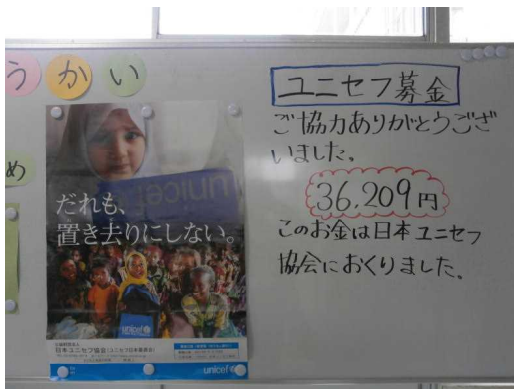 うかい
め
unicef
だれも、
置き去りにしない。
unicef
日本ユニセフ協会
unicef
ユニセフ募金
ご協力ありがとうござ
いました。
36,209円
このお金は日本ユニセフ
協会におくりました。